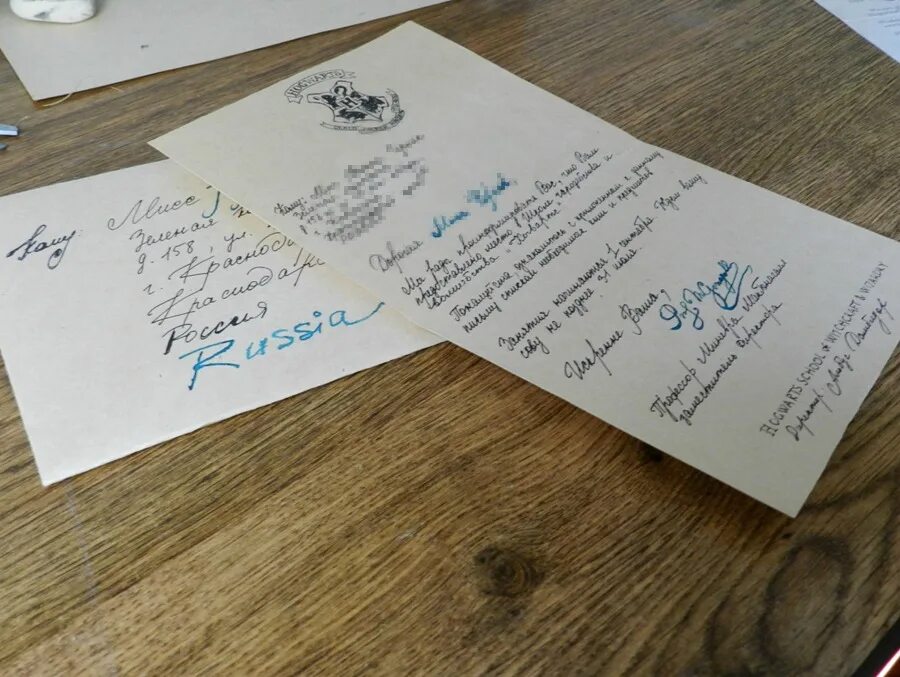 Кому: Мисс
Зеленая
д. 158, ул.
г. Краснода
Краснодарс
Россия
Russia
HOGWARTS
Кому: Мисс
Дорогая Мисс
Мы рады проинформировать Вас, что Вам
предоставлено место в Школе чародейства и
волшебства "Хогвартс".
Пожалуйста, ознакомьтесь с приложенным к данному
письму списком необходимых книг и предметов.
Занятия начинаются 1 сентября. Ждем вашу
сову не позднее 31 июля.
Искренне Ваша,
Профессор Минерва МакГонагалл
заместитель директора
HOGWARTS SCHOOL of WITCHCRAFT & WIZARDRY
Директор: Альбус Дамблдор